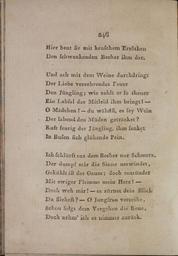 246
Hier beut sie mit keuschem Erröthen
Den schwankenden Becher ihm dar.
Und ach mit dem Weine durchdringt
Der Liebe verzehrendes Feuer
Den Jüngling; wie nahte er so theuer
Ein Labsal der Mitleid ihm bringt! —
O Mädchen! — du wähltest, es sey Wein
Der labend den Müden getränket?
Ruft feurig der Jüngling, ihm senket
In Busen sich glühende Pein.
Ich schlürft' aus dem Becher nur Schmerz,
Der dampft mir die Sinne
Gekühlt ist der Gaum; doch
Mit ewiger Flamme mein Herz! —
Doch weh mir! — es zürnet dein Blick
Du fliehest? — O Jungfrau verzeihe,
Schon folgt dem Vergehen die Reue,
Doch nehm' ich es nimmer zurück.